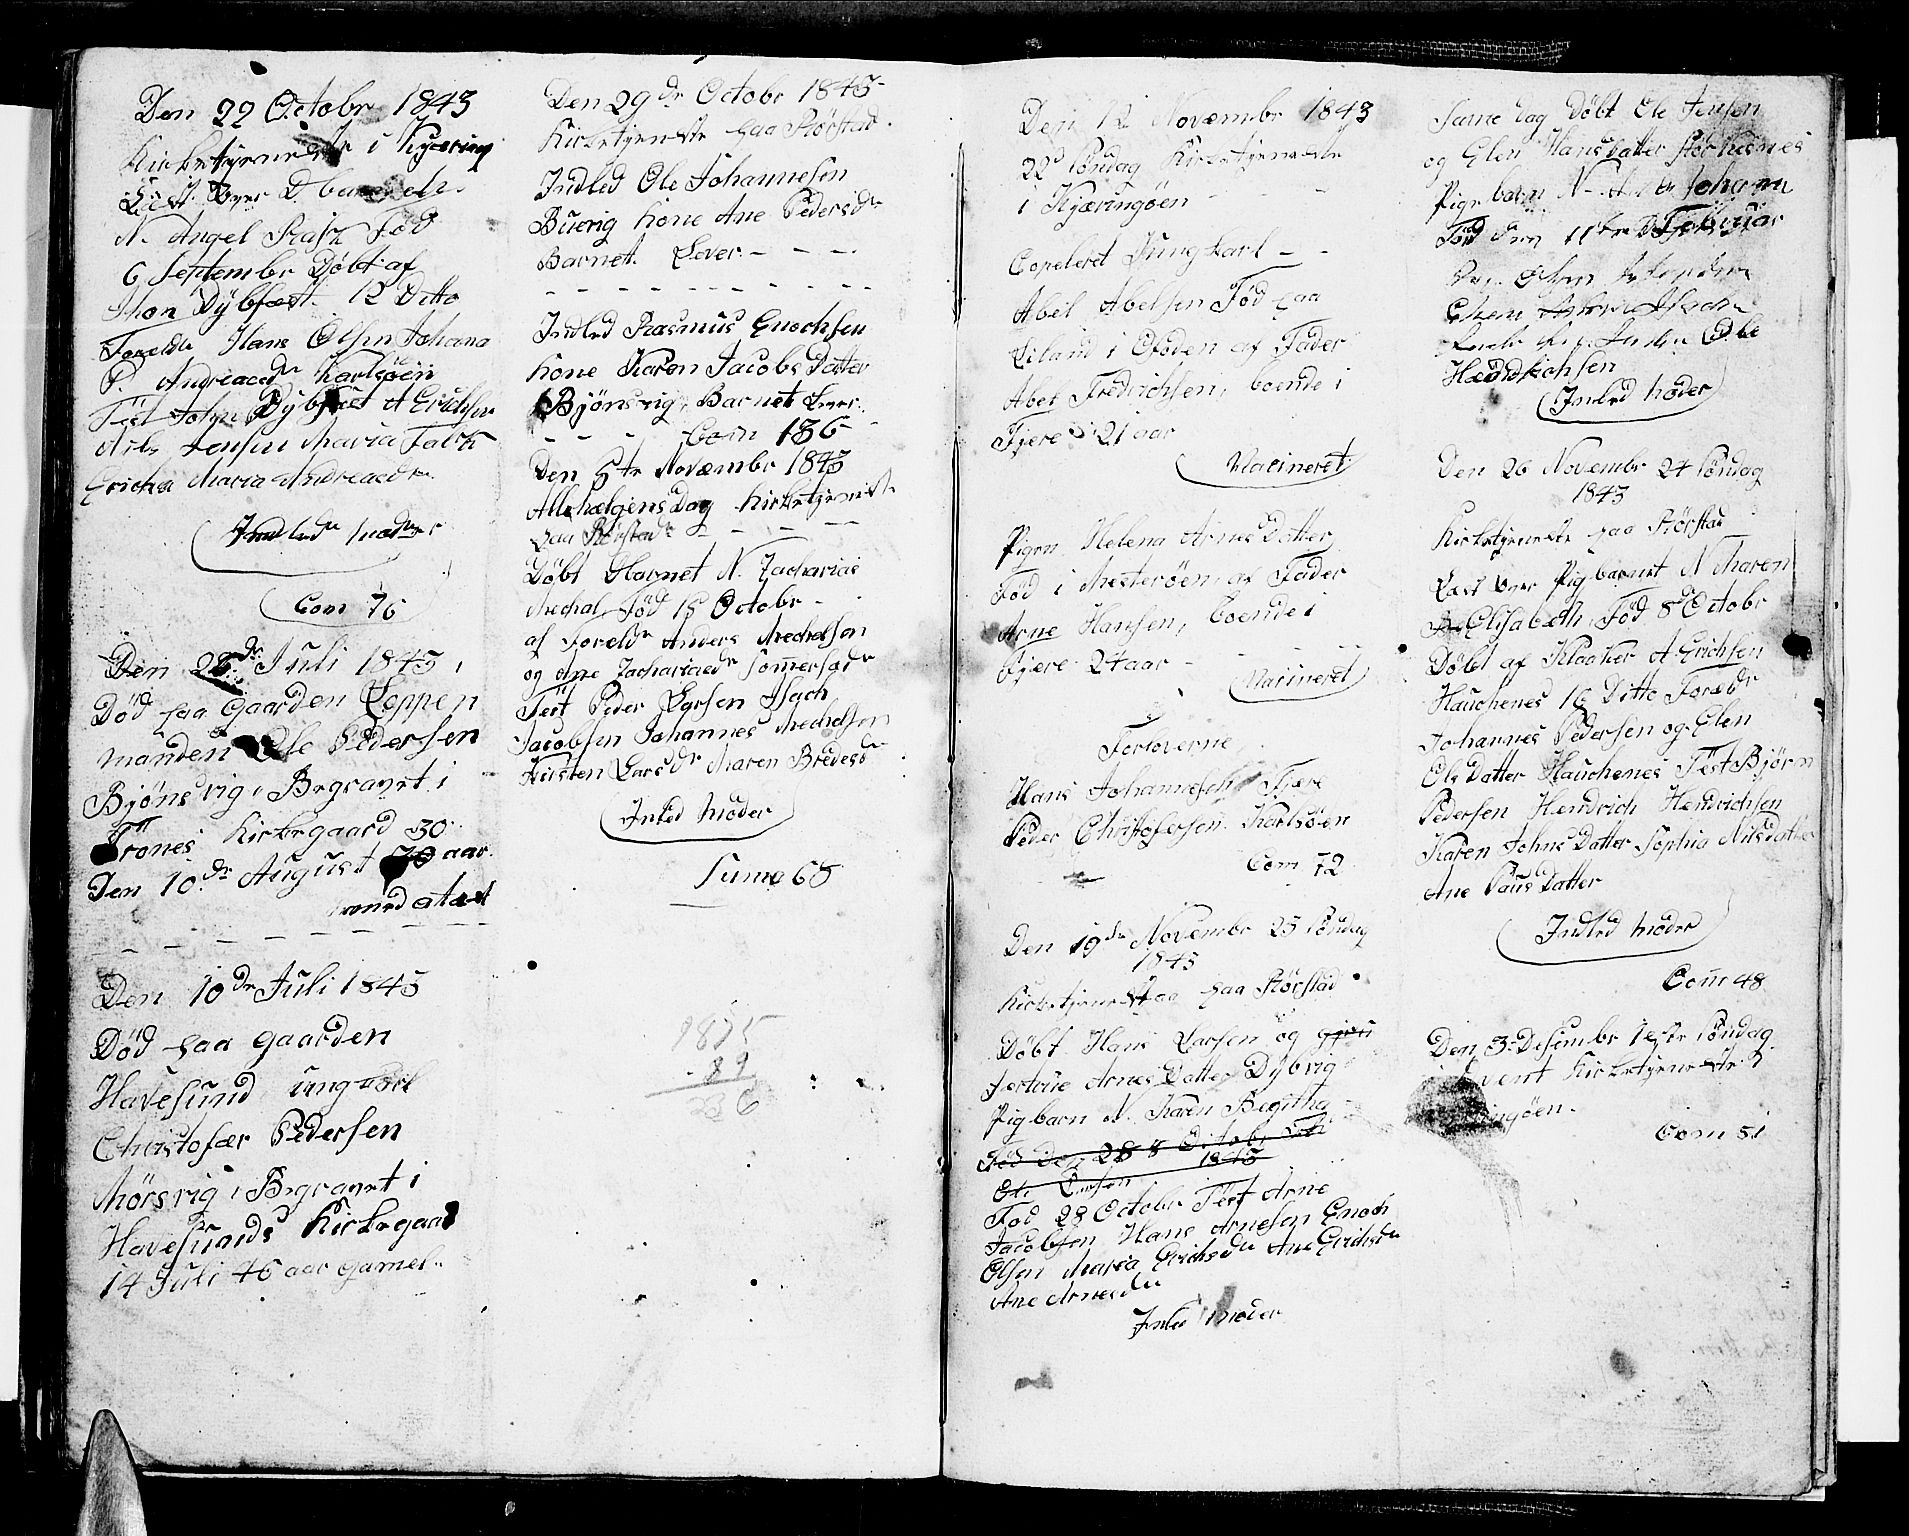 Den 22 Octobr 1843
Kirketjeneste i Kjæring
Læst over D. barn
N. Angel Fød
6 Septembr Døbt af
Thon Dybfæst. 12 Ditto
Foreldr Hans Olsen Johana
P. Andreaedr Karlsøen
Test John Dybfæst A Erichsen
Nils Jensen Maria Falch
Ericka Maria Andreaedr
Indled moder
Com 76
Den 25de Juli 1843
Død paa Gaarden Leppen
manden Ole Pedersen
Bjønsvig, Begravet i
Trones Kirkegaard 30
Den 10de August 70 aar
Den 10de Juli 1843
Død paa gaarden
Havesund ungkarl
Christofær Pedersen
Mørsvig, Begravet i
Havesunds Kirkegaar
14 Juli 46 aar gamel
Den 29de Octobr 1843
Kirketjeneste paa Rørstad
Indled Ole Johannesen
Buevig kone Ane Pedersdr
Barnet Lever
Indled Rasmus Enochsen
kone Karen Jacobs Datter
Bjønsvig, Barnet Lever
Com 136
Den 5te Novembr 1843
Allehelgens Dag Kirketjeneste
paa Rørstad
Døbt Barnet N. Zacharias
Mechal, Fød 15 Octobr
af Foreldr Anders Mechelsen
og Ane Zachariaedr Sommersædr
Test Peder Larsen Isach
Jacobsen Johannes Mechelsen
Kirsten Larsdr Maren Bredesdr
Inled Moder
Suma 65
1815
89
236
Den 12 Novembr 1843
22de Søndag Kirketjeneste
i Kjæringøen
Copeleret Ungkarl
Abel Abelsen Fød paa
Liland i Ofoden af Fader
Abel Fredrichsen, boende i
Fjere 21 aar
Vacineret
Pigen Helena Arnes Datter
Fød i Mesterøen, af Fader
Arne Hansen, boende i
Fjere 24 aar
Vacineret
Forloverne
Hans Johannesen Fjære
Peder Christofersen Karlsøen
Com 72
Den 19de Novembr 23 Søndag
1843
Kirketjenestaa paa Rørstad
Døbt Hans Larsen og
Jertrue Arnes Datter Dybvig
Pigbarn N. Karen Begitha
Fød Den 28 8 Octobr
1843
Fød 28 October Test Arne
Jacobsen Hans Arnesen Enoch
Olsen Maria Erichsdr Ane Erichsdr
Ane Arnesdr
Inled Moder
Same dag Døbt Ole Jensen
og Elen Hansdatter
Pige barn N. Johana
Fød den 11te Februar
Hendrichsen
Inled moder
Den 26 Novembr 24 Søndag
1843
Kirketjeneste paa Rørstad
Læst over Pig barnet N Maren
Elisabeth, Fød 8de Octobr
Døbt af Klocker A Erichsen
Hauchenes 16 Ditto Foreldr
Johannes Pedersen og Elen
Ols Datter Hauchenes Test Bjørn
Pedersen Hendrich Hendrichsen
Karen Johns Datter Sophia Nilsdatter
Ane Pauls Datter
Indled Moder
Com 48
Den 3 Desembr 1este Søndag
Advent Kirketjeneste i
Kjæringøen
Com 51